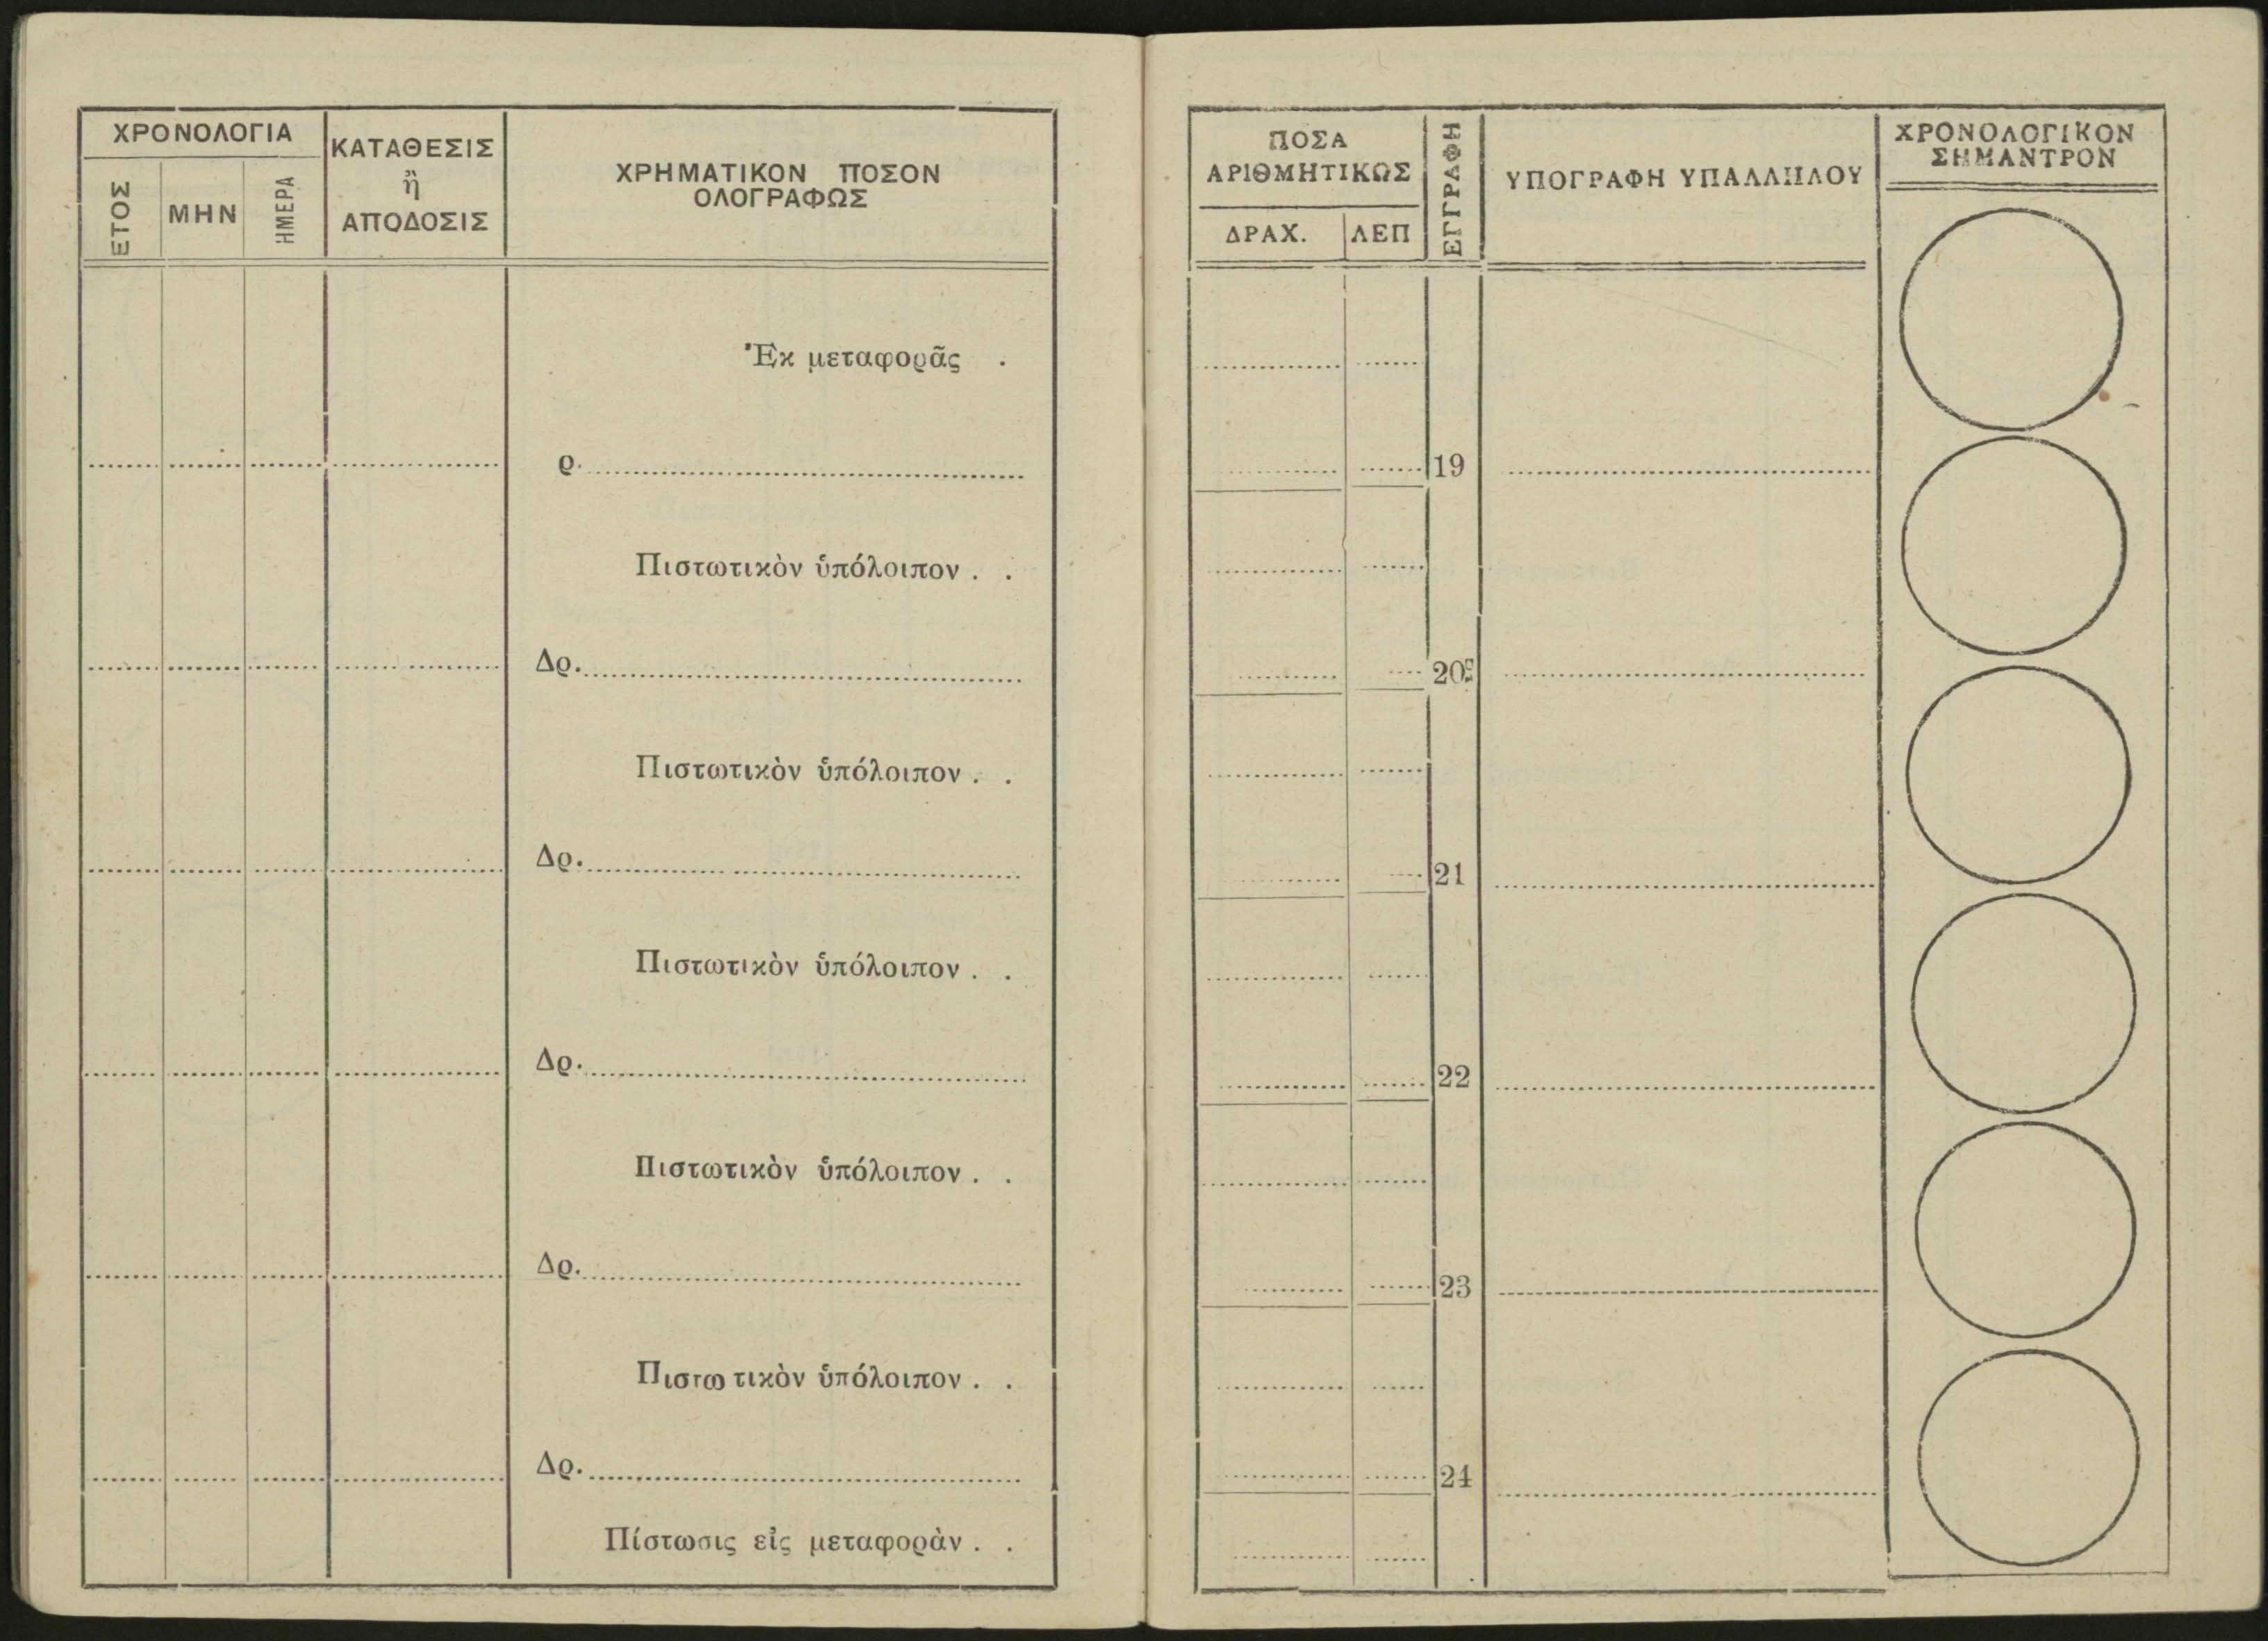 ΧΡΟΝΟΛΟΓΙΑ
ΕΤΟΣ
ΜΗΝ
ΗΜΕΡΑ
ΚΑΤΑΘΕΣΙΣ
ἢ
ΑΠΟΔΟΣΙΣ
ΧΡΗΜΑΤΙΚΟΝ ΠΟΣΟΝ
ΟΛΟΓΡΑΦΩΣ
Ἐκ μεταφορᾶς .
ρ.
Πιστωτικὸν ὑπόλοιπον . .
Δρ.
Πιστωτικὸν ὑπόλοιπον . .
Δρ.
Πιστωτικὸν ὑπόλοιπον . .
Δρ.
Πιστωτικὸν ὑπόλοιπον . .
Δρ.
Πιστωτικὸν ὑπόλοιπον . .
Δρ.
Πίστωσις εἰς μεταφορὰν . .
ΠΟΣΑ
ΑΡΙΘΜΗΤΙΚΩΣ
ΔΡΑΧ.
ΛΕΠ
ΕΓΓΡΑΦΗ
ΥΠΟΓΡΑΦΗ ΥΠΑΛΛΗΛΟΥ
ΧΡΟΝΟΛΟΓΙΚΟΝ
ΣΗΜΑΝΤΡΟΝ
19
20
21
22
23
24